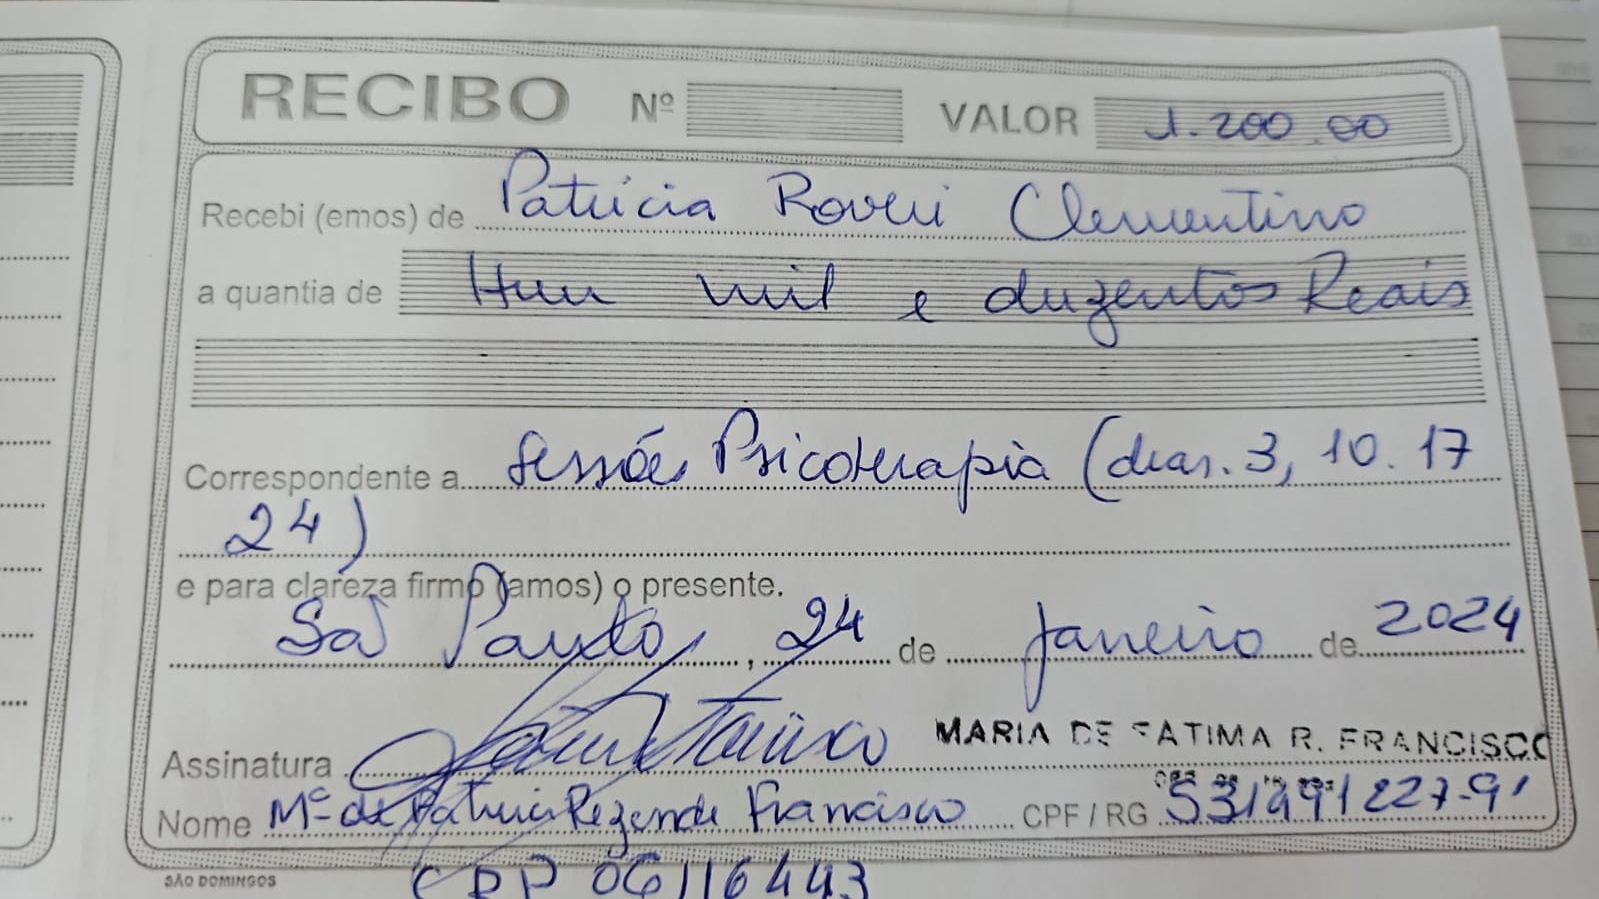 RECIBO Nº VALOR 1.200.00
Recebi (emos) de Patricia Roveri Clementino
a quantia de Hum mil e duzentos Reais
Correspondente a Sessões Psicoterapia (dias. 3, 10. 17
24)
e para clareza firmo (amos) o presente.
São Paulo, 24 de Janeiro de 2024
Assinatura MARIA DE FATIMA R. FRANCISCO
Nome Mª de Fatima Rezende Francisco CPF / RG
SÃO DOMINGOS CRP 06/16443